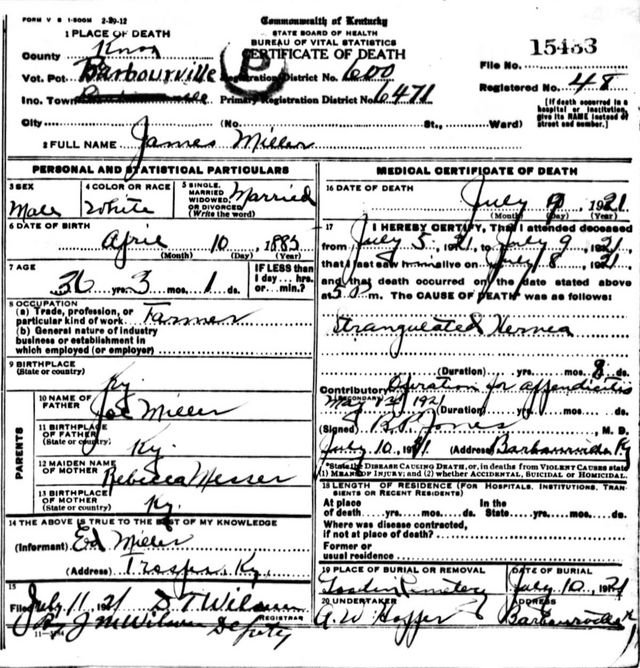 FORM V S 1-500M 2-29-12
Commonwealth of Kentucky
STATE BOARD OF HEALTH
BUREAU OF VITAL STATISTICS
CERTIFICATE OF DEATH
1 PLACE OF DEATH
County Knox
Vot. Pct. Barbourville
Inc. Town
City (No. St., Ward)
P
Registration District No. 600
Primary Registration District No. 6471
File No. 15483
Registered No. 48
[If death occurred in a hospital or institution, give its NAME instead of street and number.]
2 FULL NAME James Miller
PERSONAL AND STATISTICAL PARTICULARS
3 SEX Male
4 COLOR OR RACE White
5 SINGLE, MARRIED WIDOWED, OR DIVORCED (Write the word) Married
6 DATE OF BIRTH
April 10, 1885
(Month) (Day) (Year)
7 AGE
36 yrs. 3 mos. 1 ds.
IF LESS than 1 day... hrs. or... min.?
8 OCCUPATION
(a) Trade, profession, or particular kind of work Farmer
(b) General nature of industry
business or establishment in
which employed (or employer)
9 BIRTHPLACE
(State or country) Ky.
PARENTS
10 NAME OF FATHER Joe Miller
11 BIRTHPLACE OF FATHER (State or country) Ky.
12 MAIDEN NAME OF MOTHER Rebecca Messer
13 BIRTHPLACE OF MOTHER (State or country) Ky.
14 THE ABOVE IS TRUE TO THE BEST OF MY KNOWLEDGE
(Informant) Ed Miller
(Address) Ky.
15
Filed July 11, 1921 REGISTRAR
Deputy
MEDICAL CERTIFICATE OF DEATH
16 DATE OF DEATH
July 9 1921
(Month) (Day) (Year)
17 I HEREBY CERTIFY, That I attended deceased
from July 5, 1921, to July 9 1921
that I last saw him alive on July 8 1921
and that death occurred on the date stated above
at m. The CAUSE OF DEATH was as follows:
Strangulated Hernea
(Duration) yrs. mos. 8 ds.
Contributory Operation for appendicitis
SECONDARY
May 1921 (Duration) yrs. mos. ds.
(Signed) Jones, M. D.
July 10, 1921 (Address) Barbourville Ky
*State the DISEASE CAUSING DEATH, or, in deaths from VIOLENT CAUSES state
1) MEANS OF INJURY; and (2) whether ACCIDENTAL, SUICIDAL OR HOMICIDAL.
18 LENGTH OF RESIDENCE (FOR HOSPITALS, INSTITUTIONS, TRANSIENTS OR RECENT RESIDENTS)
At place of death yrs. mos. ds. In the State yrs. mos. ds.
Where was disease contracted,
if not at place of death?
Former or
usual residence
19 PLACE OF BURIAL OR REMOVAL
Cemetery
DATE OF BURIAL
July 10, 1921
20 UNDERTAKER
G. W. Hopper
ADDRESS
Barbourville